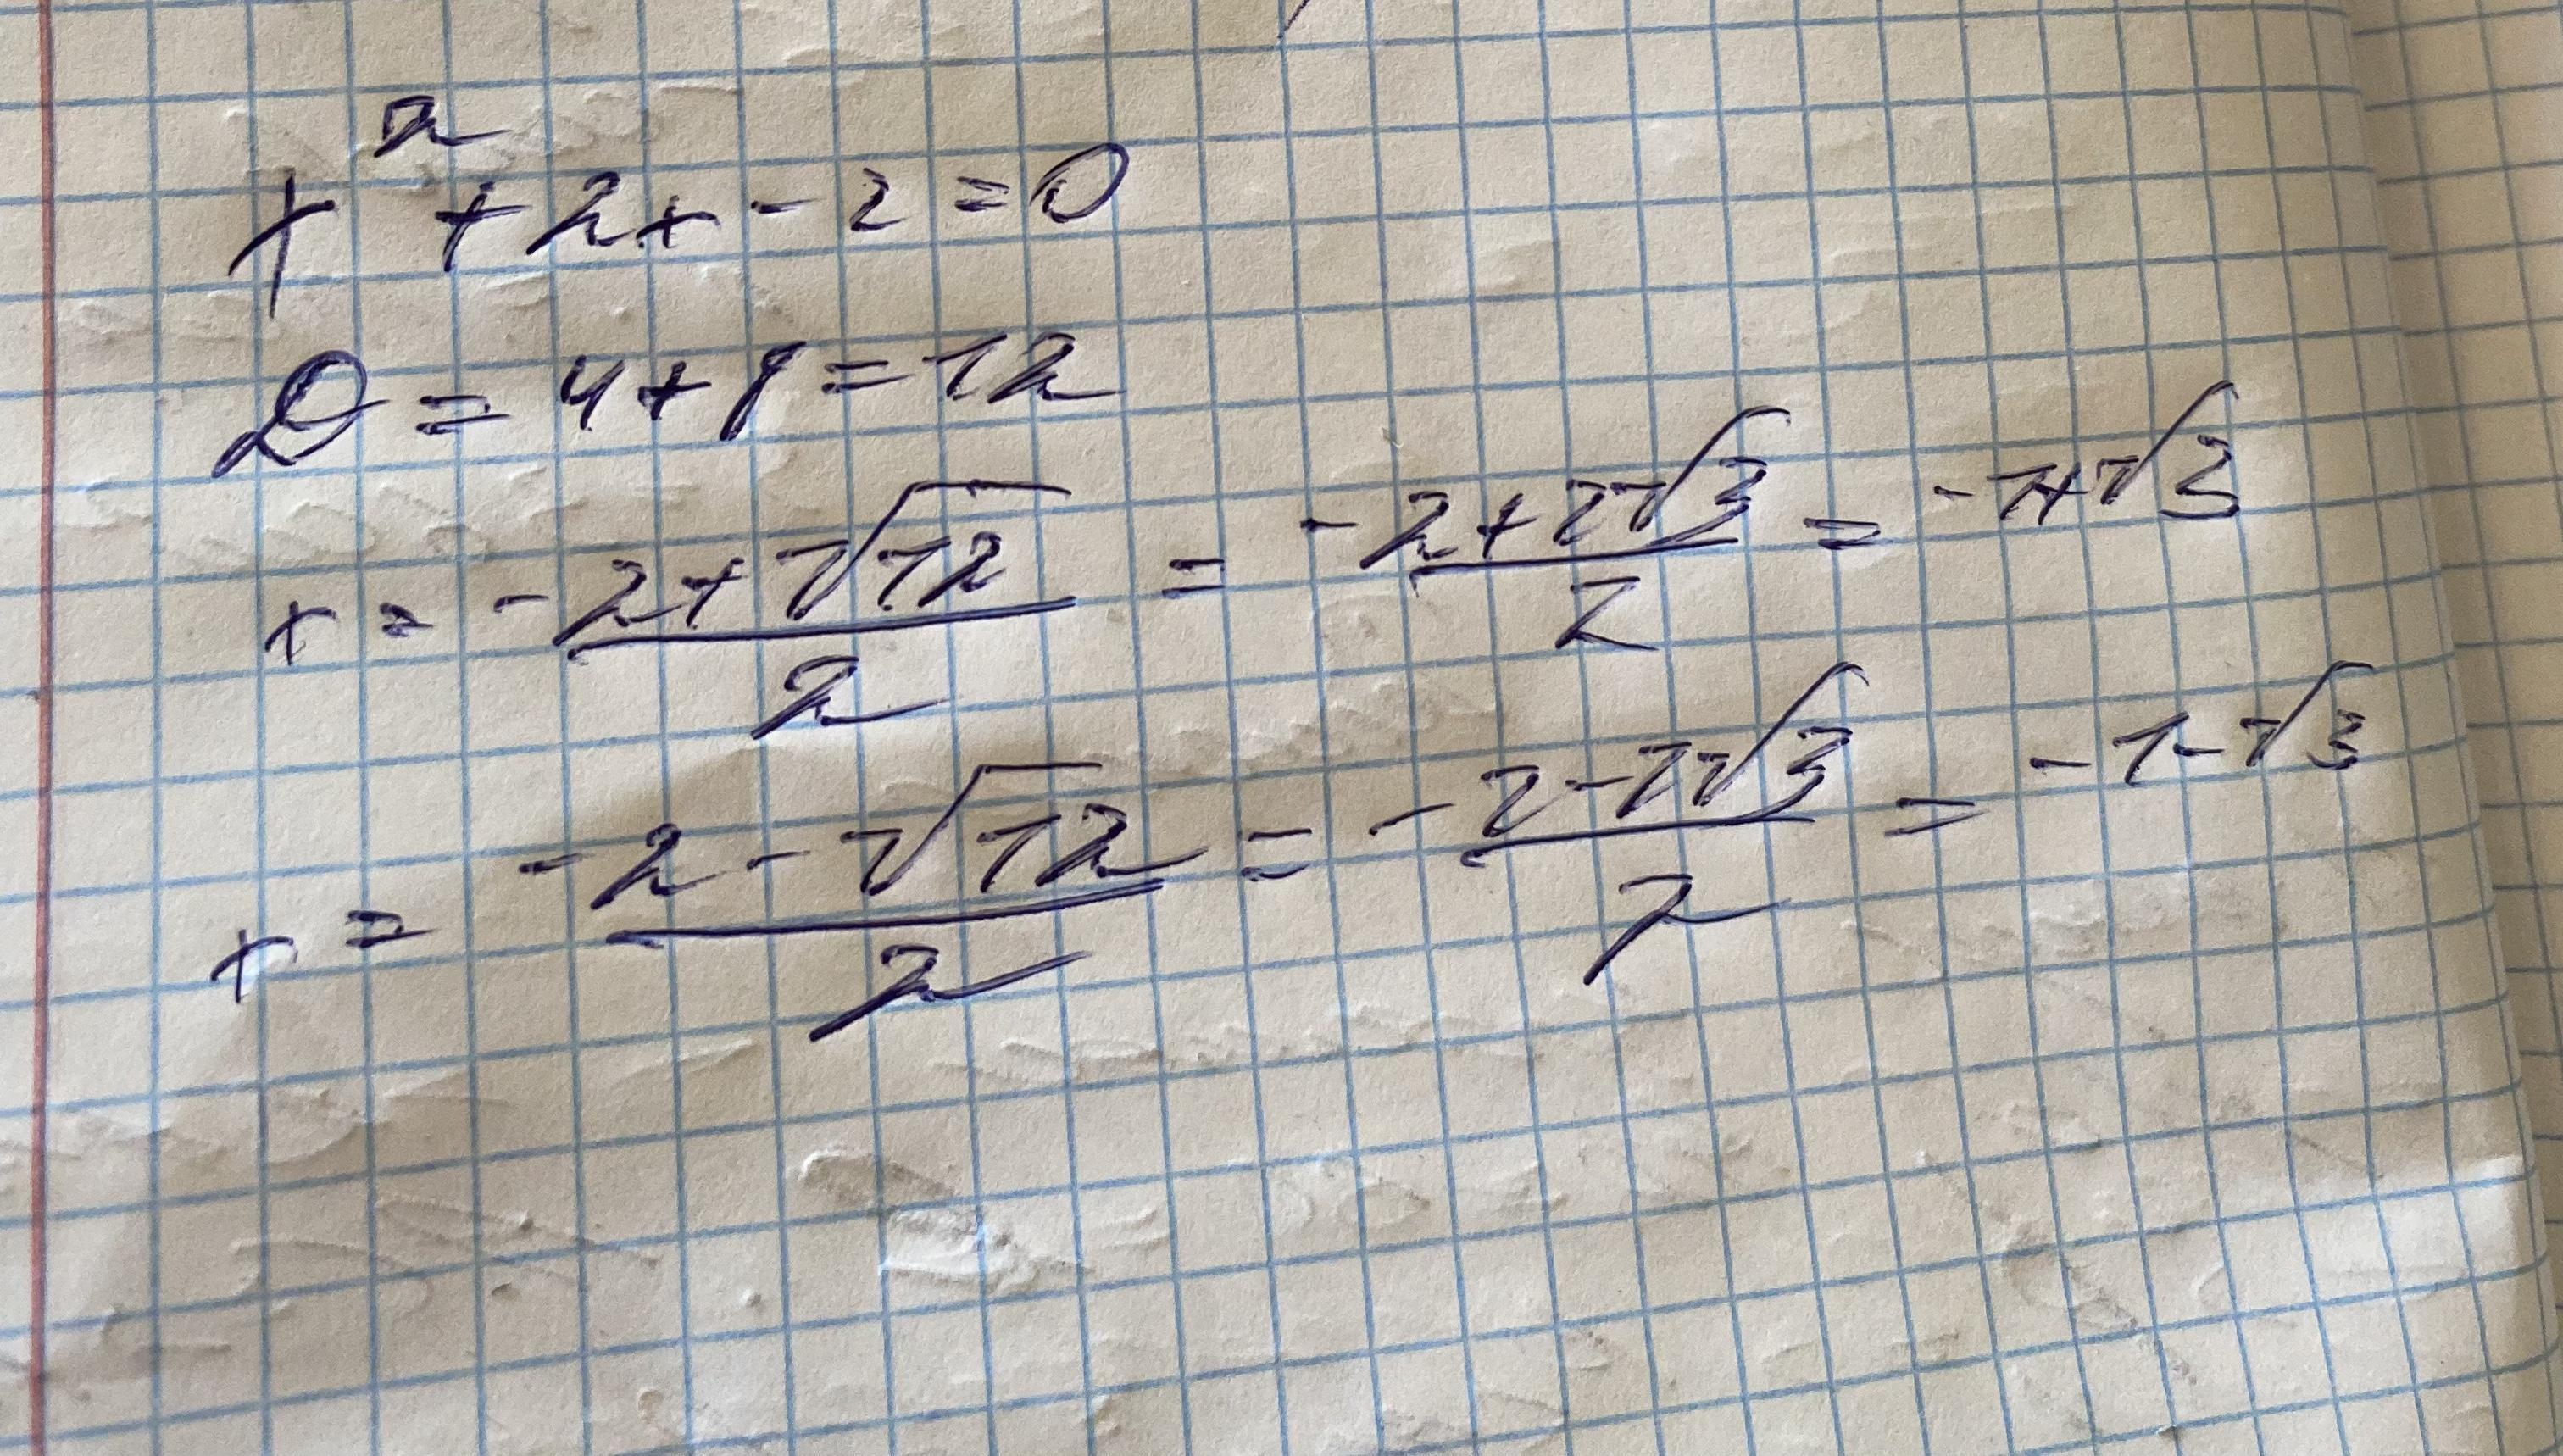 x² + 2x - 2 = 0
D = 4 + 8 = 12
x = (-2 + √12)/2 = (-2 + 2√3)/2 = -1 + √3
x = (-2 - √12)/2 = (-2 - 2√3)/2 = -1 - √3